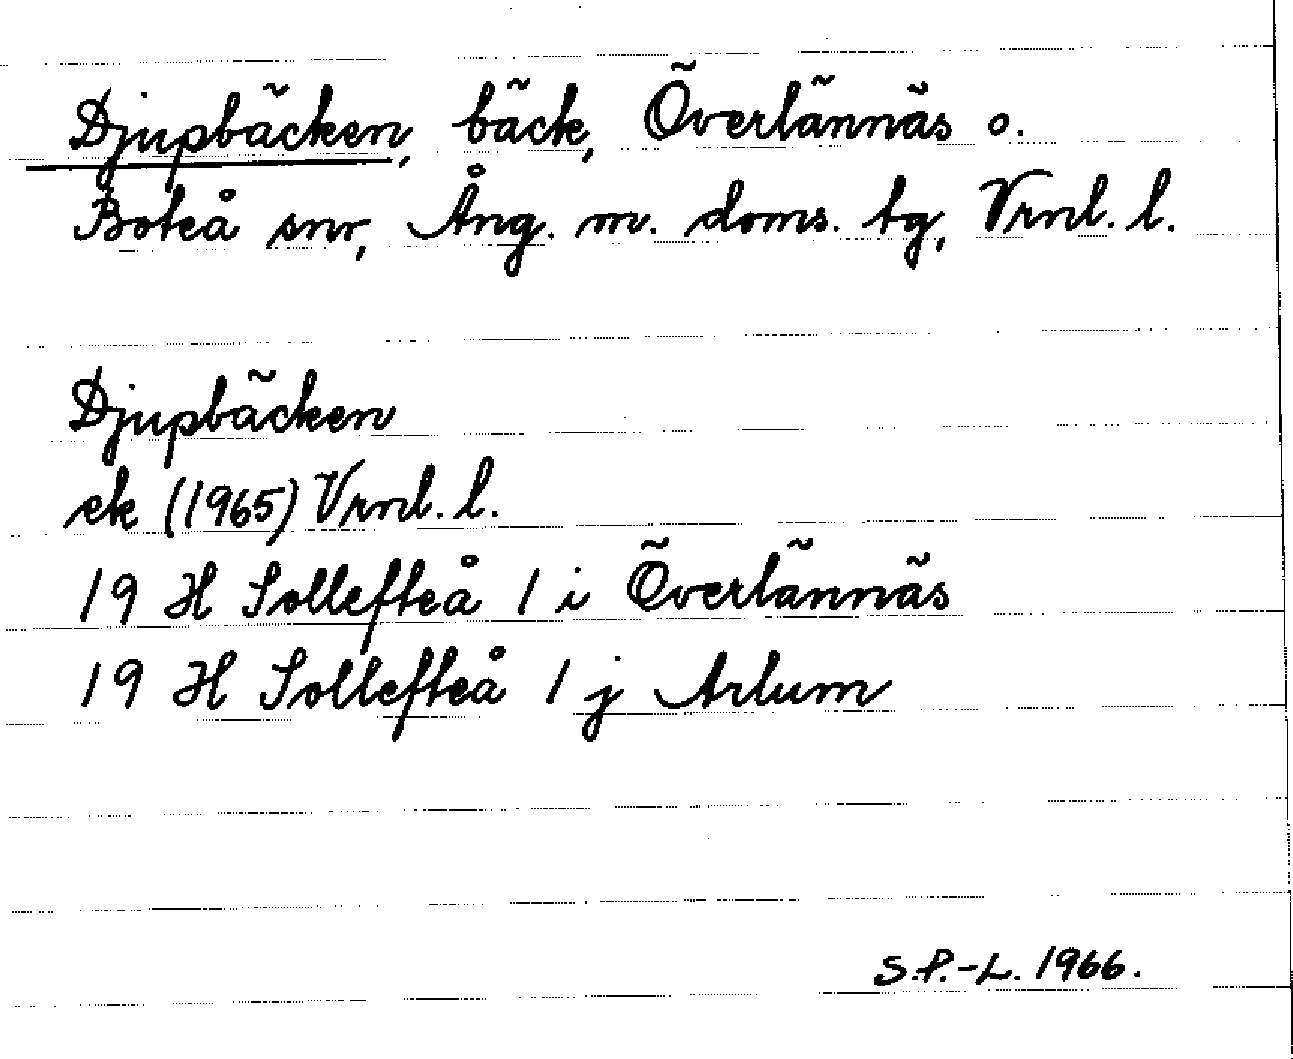 Djupbäcken, bäck, Överlännäs o.
Boteå snr, Ång. m. doms. tg, Vrnl. l.
Djupbäcken
ek (1965) Vrnl. l.
19 H Sollefteå 1 i Överlännäs
19 H Sollefteå 1 j Arlum
S.P.-L. 1966.